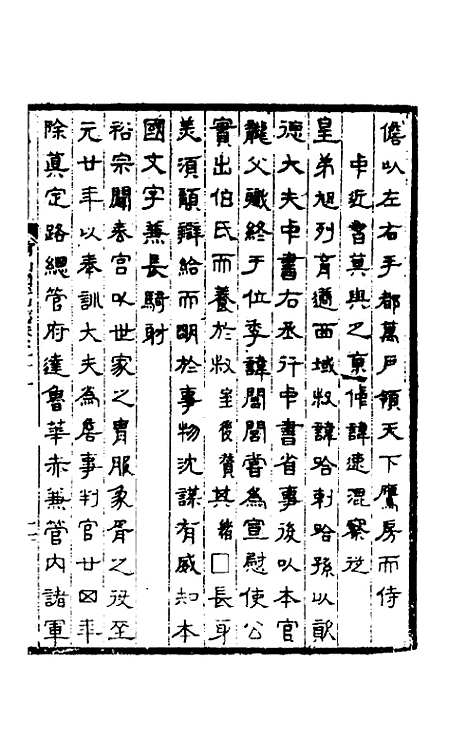 儋以左右手都萬戶領天下鷹房而侍
中近書莫與之京仲諱速混察從
皇弟旭列育適西域叔諱哈剌哈孫以歐
德大夫中書右丞行中書省事後以本官
龍父職終于位季諱闊闊嘗為宣慰使公
實出伯氏而養於叔室後贊其緒□長身
美須頿辯給而明於事物沈謀有威知本
國文字兼長騎射
裕宗闢春宮以世家之胄服象胥之役至
元廿年以奉訓大夫為詹事判官廿□年
除真定路總管府達魯華赤兼管內諸軍